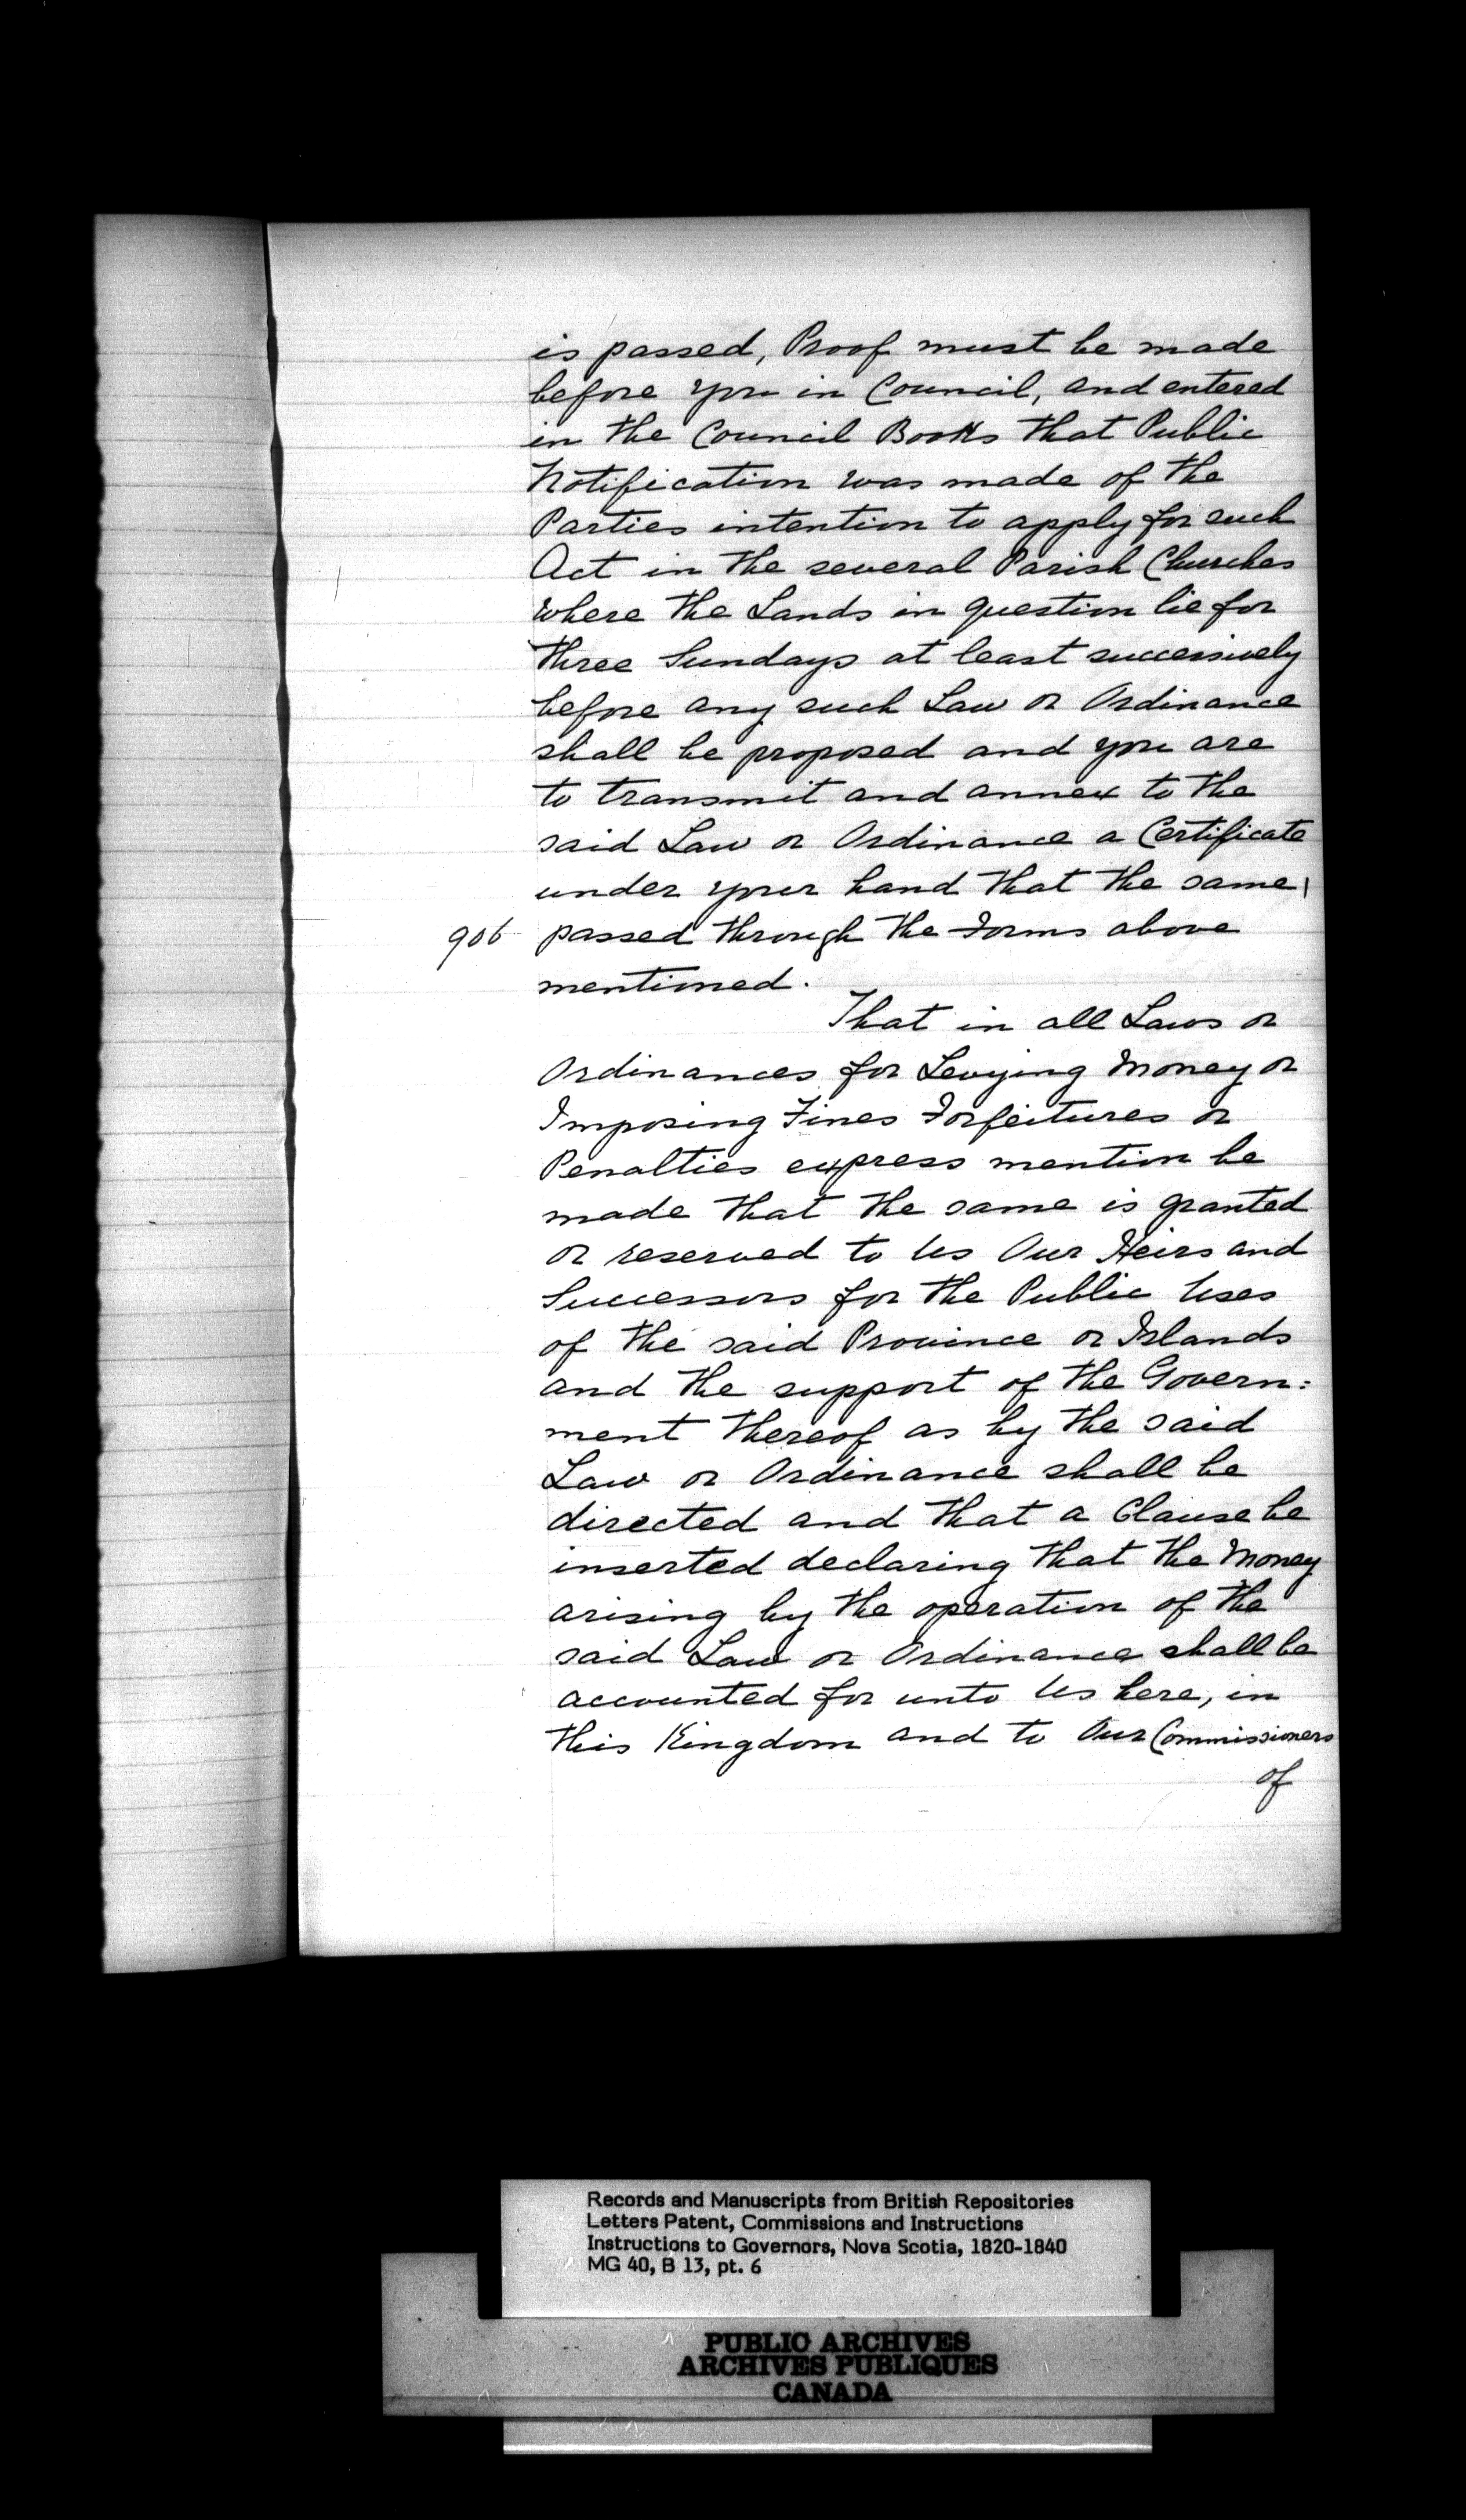 is passed, Proof must be made
before you in Council, and entered
in the Council Books that Public
Notification was made of the
Parties intention to apply for such
Act in the several Parish Churches
where the Lands in question lie for
three Sundays at least successively
before any such Law or Ordinance
shall be proposed and you are
to transmit and annex to the
said Law or Ordinance a Certificate
under your hand that the same
906 passed through the Forms above
mentioned.
That in all Laws or
Ordinances for Levying Money or
Imposing Fines Forfeitures or
Penalties express mention be
made that the same is granted
or reserved to Us Our Heirs and
Successors for the Public Uses
of the said Province or Islands
and the support of the Govern:
ment thereof as by the said
Law or Ordinance shall be
directed and that a Clause be
inserted declaring that the Money
arising by the operation of the
said Law or Ordinance shall be
accounted for unto Us here, in
this Kingdom and to Our Commissioners
of
Records and Manuscripts from British Repositories
Letters Patent, Commissions and Instructions
Instructions to Governors, Nova Scotia, 1820-1840
MG 40, B 13, pt. 6
PUBLIC ARCHIVES
ARCHIVES PUBLIQUES
CANADA